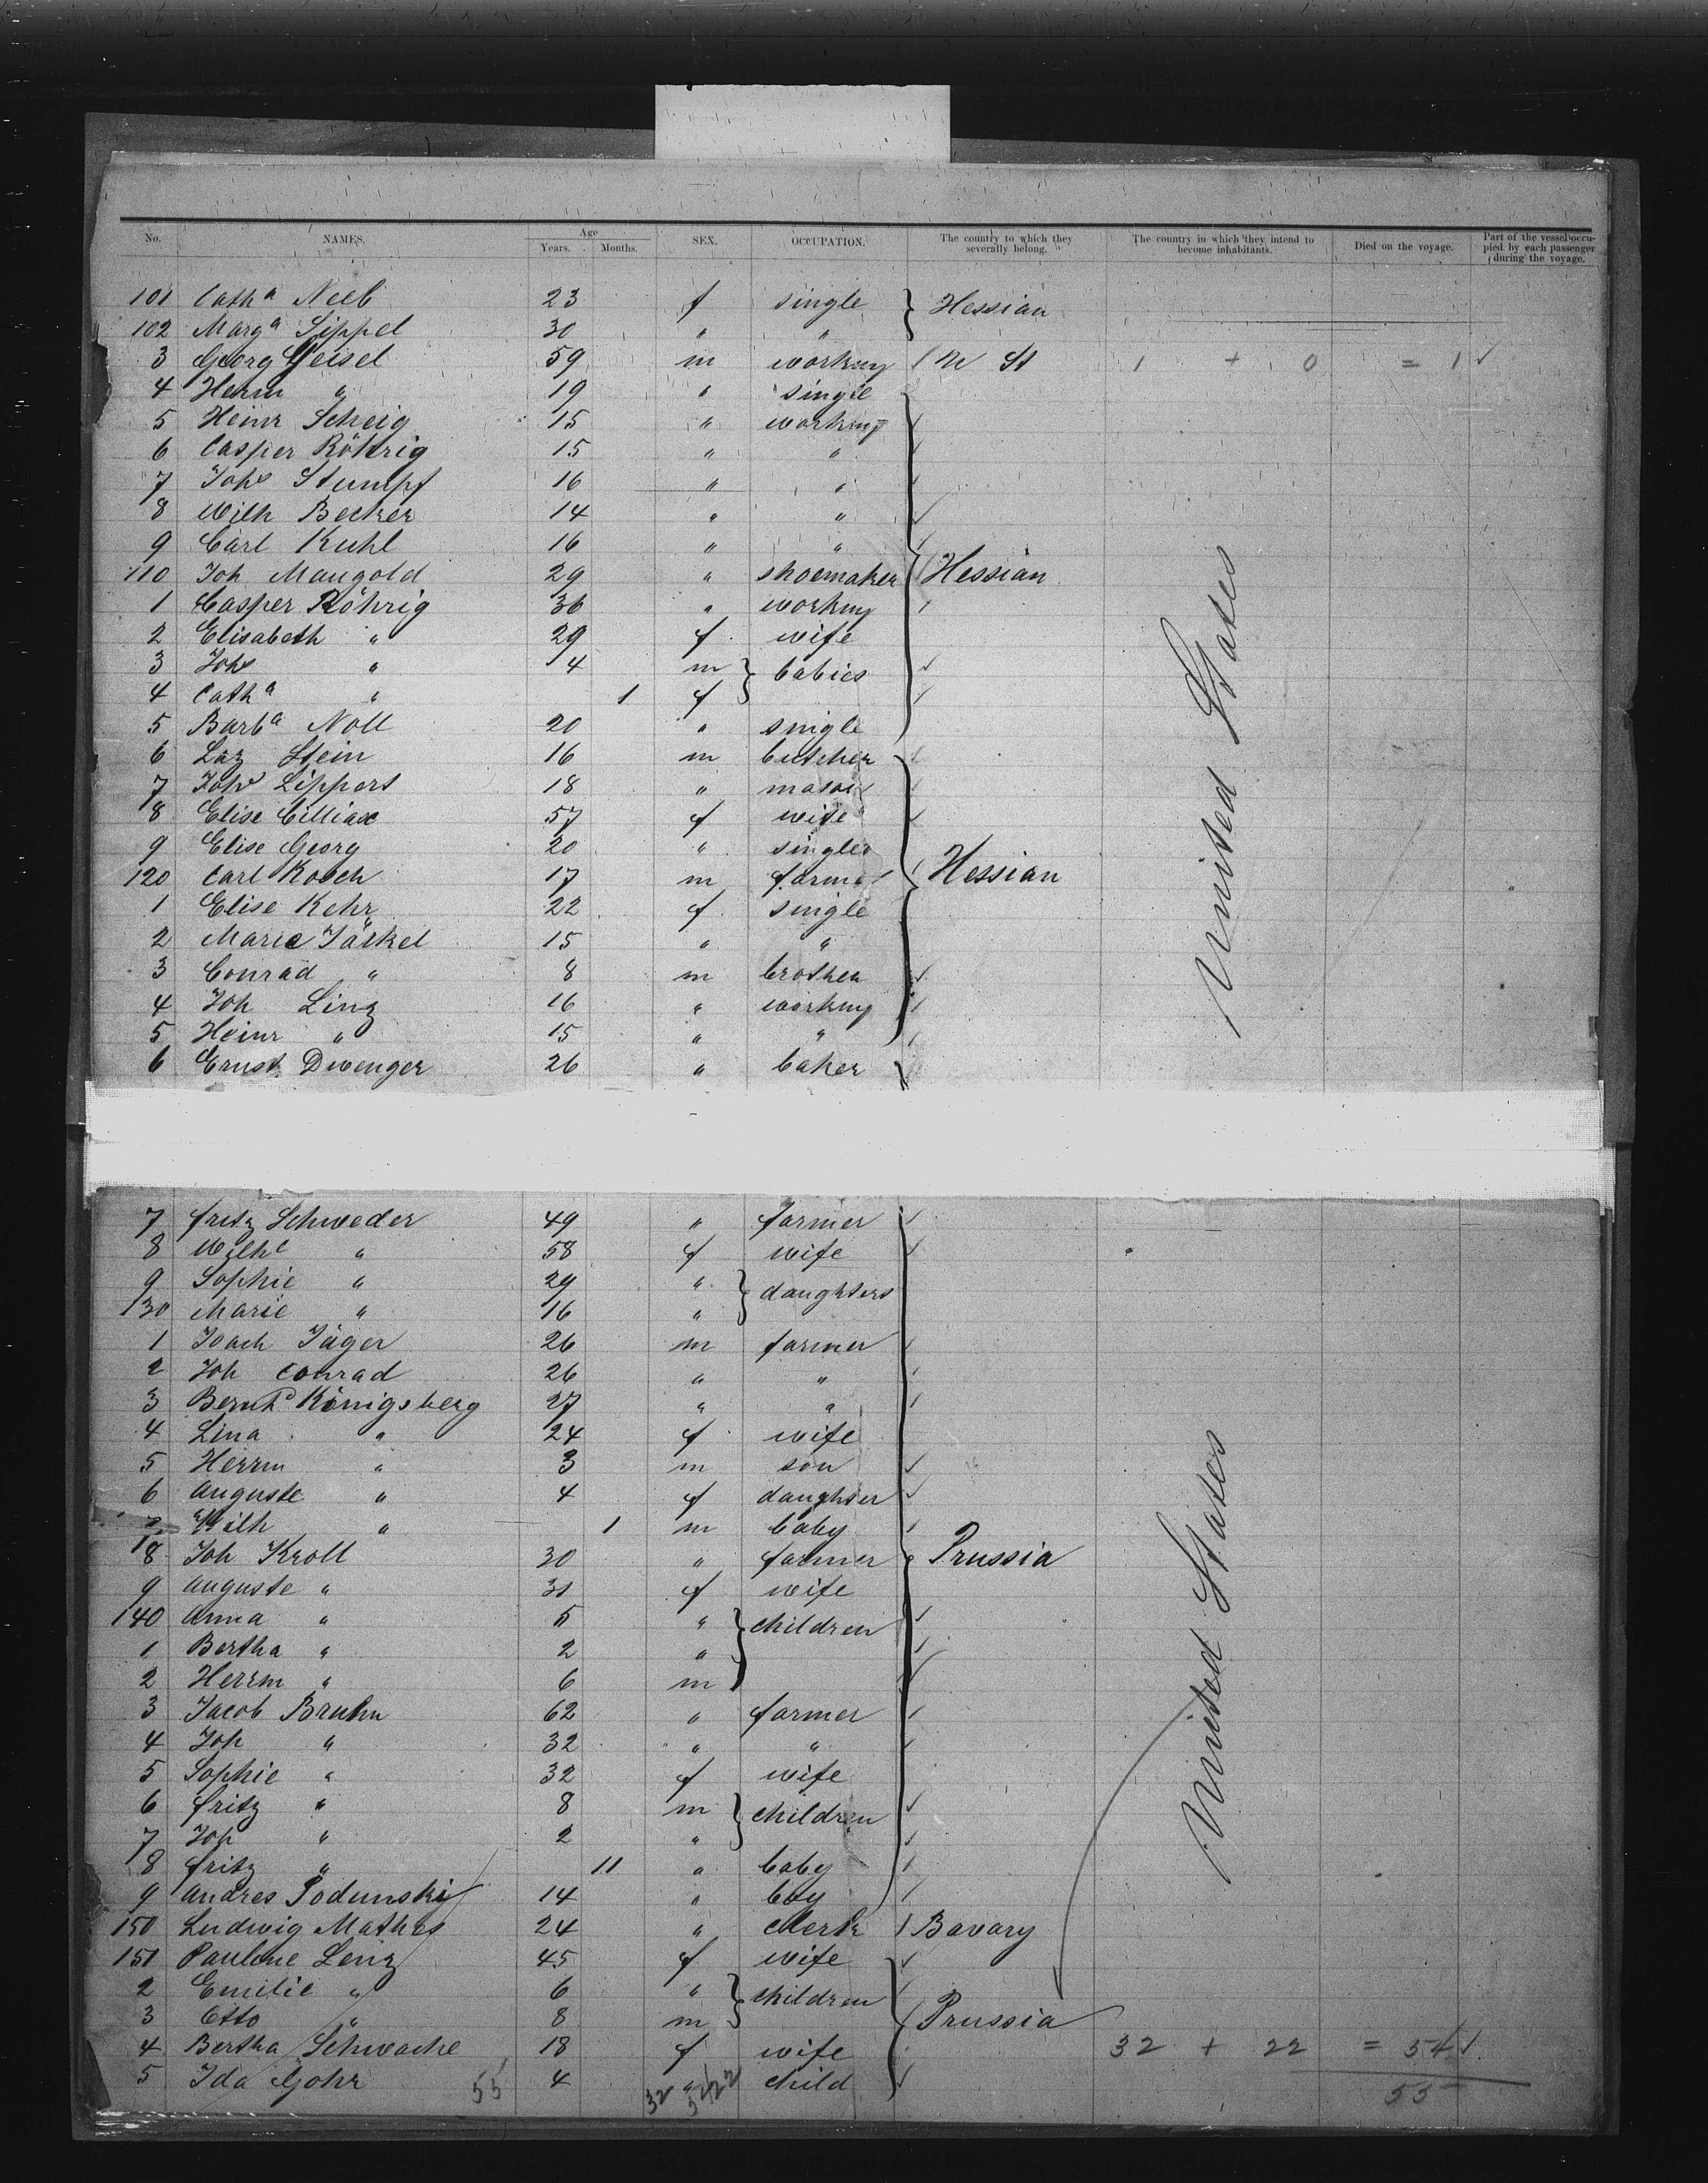 No. NAMES. Age Years. Months. SEX. OCCUPATION. The country to which they severally belong. The country in which they intend to become inhabitants. Died on the voyage. Part of the vessel occupied by each passenger during the voyage.
101 Catha Neeb 23 f single } Hessian
102 Marga Sippel 30 " "
3 Georg Geisel 59 m working U St 1 + 0 = 1 ✓
4 Herm " 19 " single
5 Heinr Scheig 15 " working
6 Casper Röhrig 15 " "
7 Johs Stumpf 16 " "
8 Wilh Becker 14 " "
9 Carl Kuhl 16 " "
110 Joh Mangold 29 " shoemaker Hessian
1 Casper Röhrig 36 " working
2 Elisabeth " 29 f wife
3 Johs " 4 m } babies
4 Catha " 1 f
5 Barba Noll 20 " single
6 Laz Stein 16 m butcher
7 Johs Lippert 18 " mason
8 Elise Cilliax 57 f wife
9 Elise Georg 20 " single
120 Carl Koch 17 m farmer Hessian
1 Elise Kehr 22 f single
2 Marie Jäckel 15 " "
3 Conrad " 8 m brother
4 Joh Linz 16 " working
5 Heinr " 15 " "
6 Ernst Dwenger 26 " baker
United States
7 Fritz Schweder 49 " farmer
8 Wilhe " 58 f wife
9 Sophie " 29 " } daughters
130 Marie " 16 "
1 Joach Jäger 26 m farmer
2 Joh Conrad 26 " "
3 Bernhd Königsberg 27 " "
4 Lina " 24 f wife
5 Herrm " 3 m son
6 Auguste " 4 f daughter
7 Wilh " 1 m baby
8 Joh Kroll 30 " farmer Prussia
9 Auguste " 31 f wife
140 Anna " 5 " } children
1 Bertha " 2 "
2 Herrm " 6 m
3 Jacob Bruhn 62 " farmer
4 Joh " 32 " "
5 Sophie " 32 f wife
6 Fritz " 8 m } children
7 Joh " 2 "
8 Fritz " 11 " baby
9 Andres Podunski 14 " boy
150 Ludwig Mathes 24 " clerk Bavary
151 Pauline Lenz 45 f wife
2 Emilie " 6 " } children
3 Otto " 8 m Prussia
4 Bertha Schwache 18 f wife 32 + 22 = 54 ✓
5 Ida Gohr 55 4 " child 55
32 22
United States